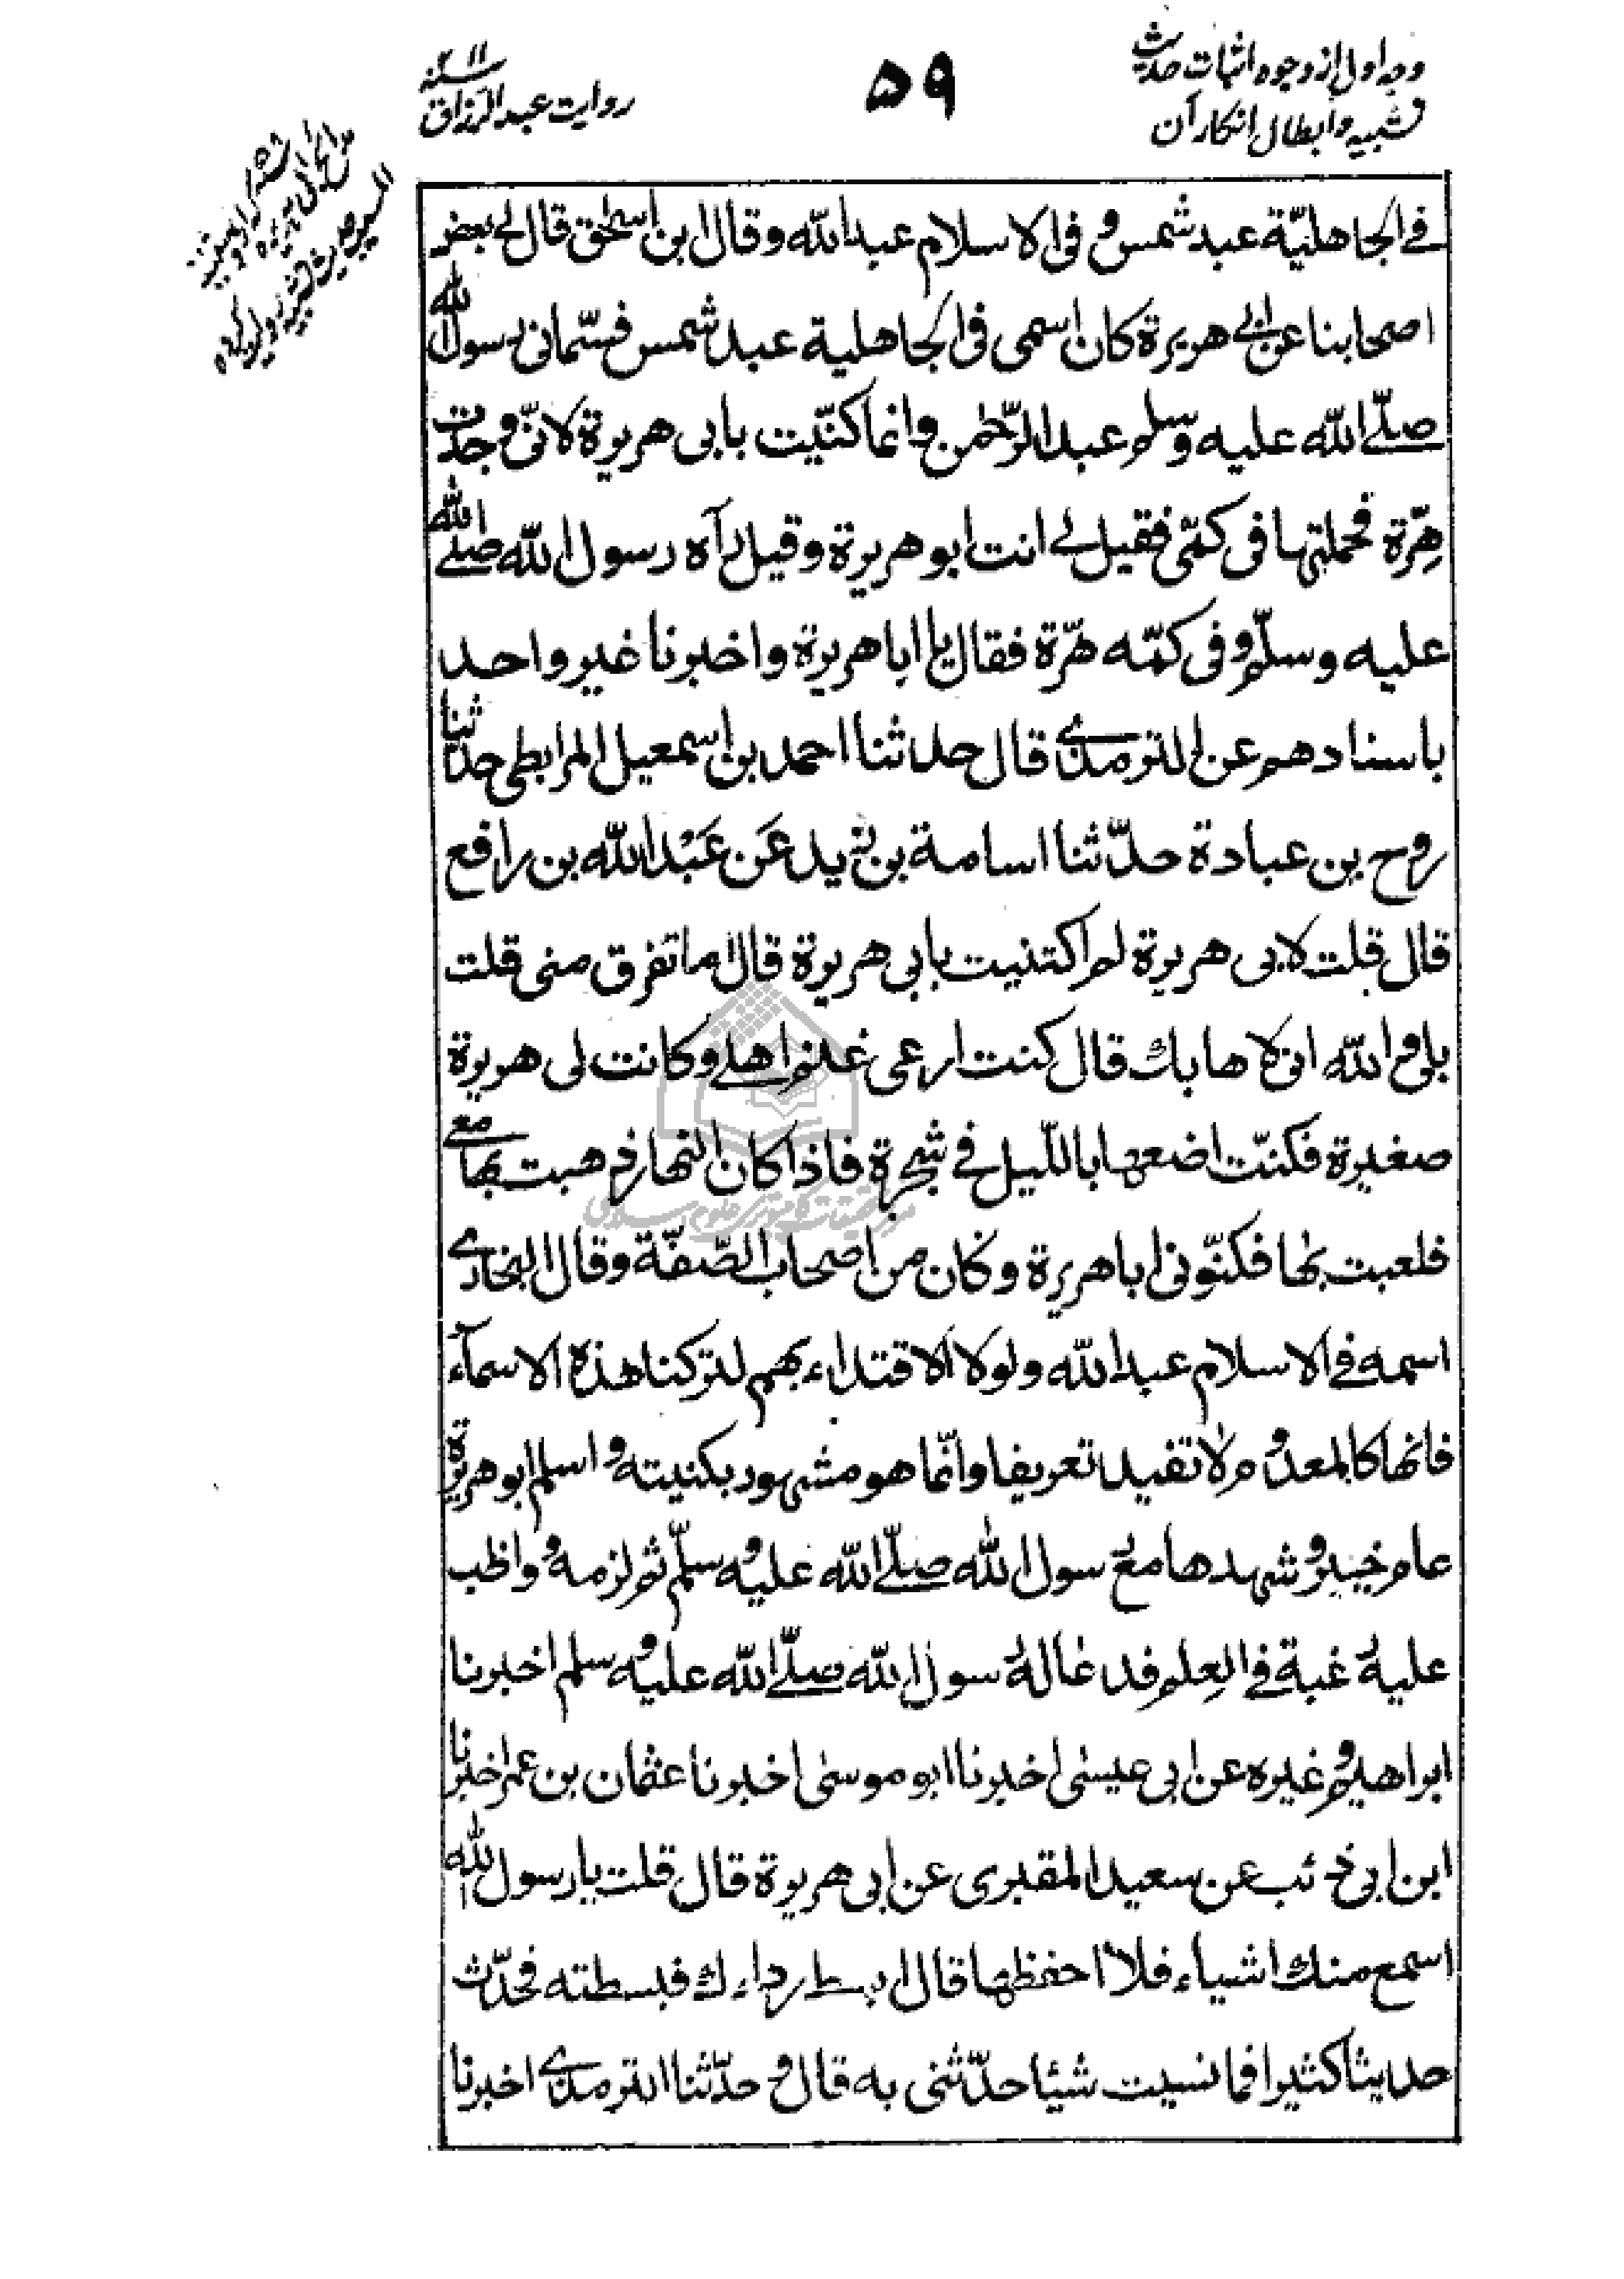 وجه اول از وجوه اثبات حدیث
تشبیه و ابطال انکار آن
۵۹
سنه ۲۱۱
روایت عبدالرزاق
فے الجاهليّة عبد شمس و فی الاسلام عبد الله وقال ابن اسحٰق قال لے بعض
اصحابنا عن ابے هريرة كان اسمی فی الجاهلية عبد شمس فسمّانی رسول الله
صلّے الله عليه وسلم عبد الرّحمٰن وانما كنّيت بابی هريرة لانّی وجدت
هِرّة فحملتها فی كمّی فقيل لے انت ابو هريرة وقيل رآه رسول الله صلے الله
عليه وسلّم و فی كمّه هرّة فقال يا ابا هريرة واخبرنا غير واحد
باسنادهم عن الترمذے قال حدثنا احمد بن اسمعيل المرابطی حدثنا
روح بن عبادة حدّثنا اسامة بن زيد عَن عَبْد الله بن رافع
قال قلت لابی هريرة لم اكتنيت بابی هريرة قال اما تفرق منی قلت
بلی والله انی لاهابك قال كنت ارعی غنم اهلے وكانت لی هريرة
صغيرة فكنت اضعها بالليل فے شجرة فاذا كان النهار ذهبت بها معے
فلعبت بها فكنّونی ابا هريرة وكان من اصحاب الصّفّة وقال البخارے
اسمه فے الاسلام عبد الله ولولا الاقتداء بهم لتركنا هذه الاسمآء
فانها كالمعدوم لا تفيد تعريفا وانّما هو مشهور بكنيته و اسلم ابو هريرة
عام خيبر و شهدها مع رسول الله صلّے الله عليه وسلّم ثم لزمه و واظب
عليه رغبة فے العلم فدعا له رسول الله صلّے الله عليه وسلم اخبرنا
ابراهيم و غيره عن ابی عيسٰی اخبرنا ابو موسٰی اخبرنا عثمان بن عمر اخبرنا
ابن ابی ذئب عن سعيد المقبری عن ابی هريرة قال قلت يا رسول الله
اسمع منك اشياء فلا احفظها قال ابسط رداءك فبسطته فحدّث
حديثا كثيرا فما نسيت شيئا حدّثنی به قال و حدّثنا الترمذے اخبرنا